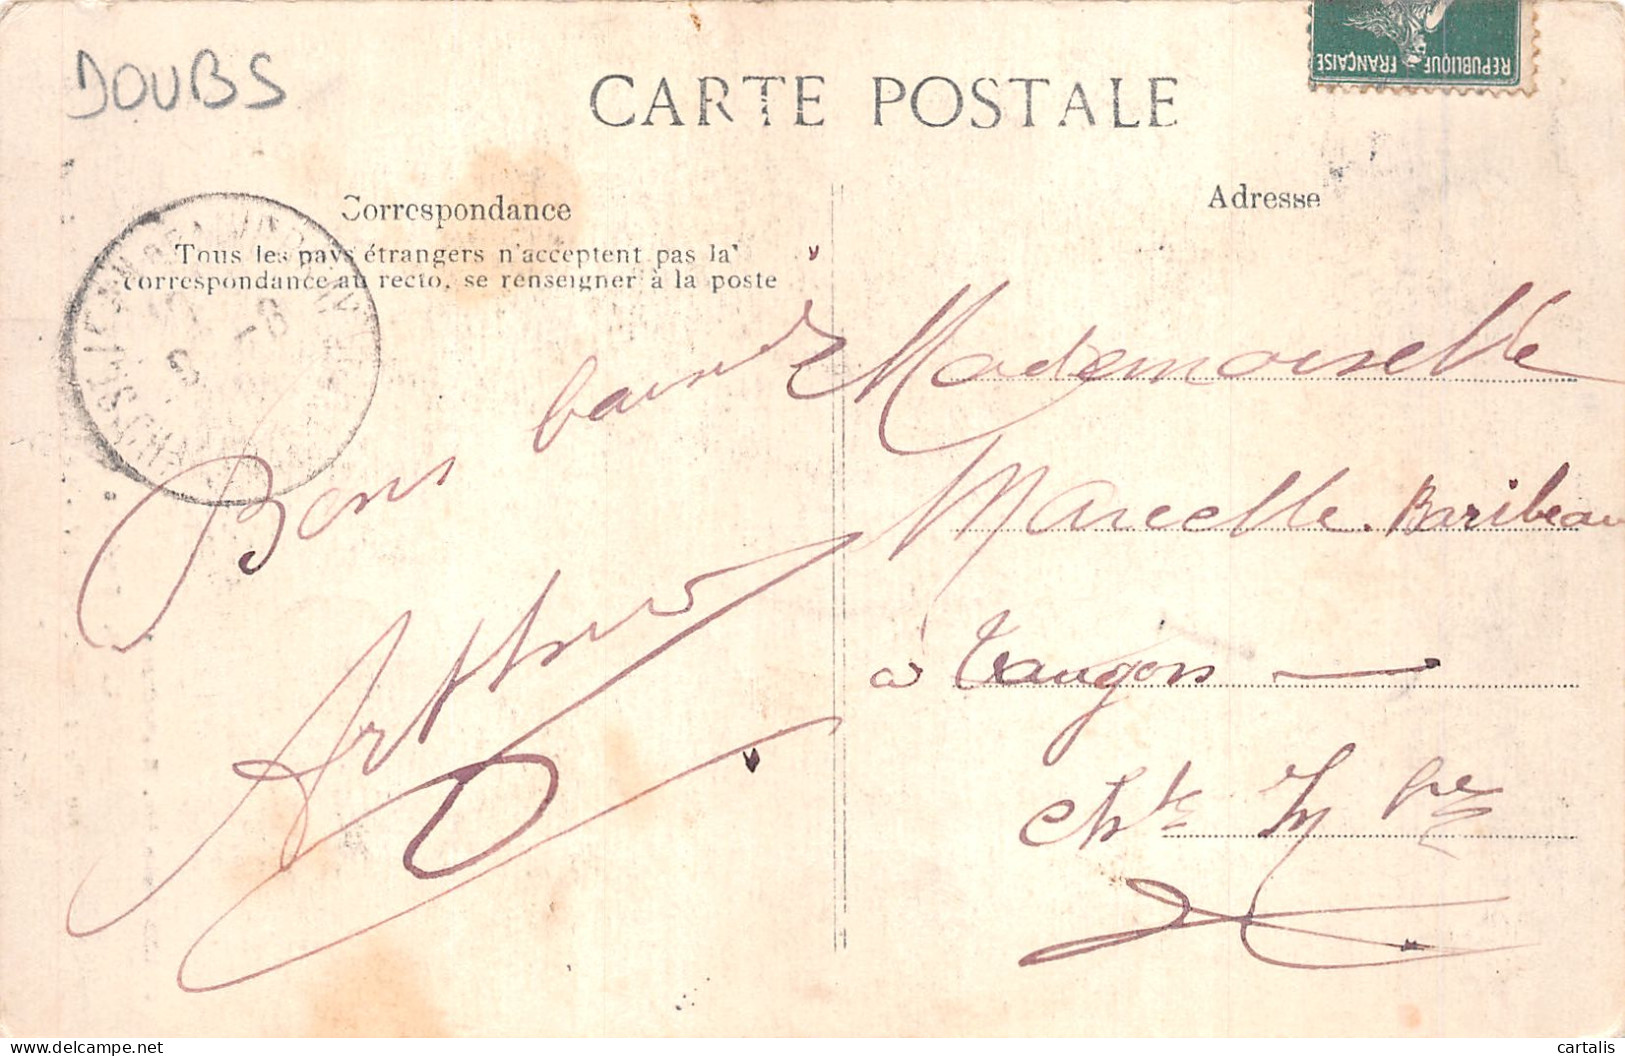 DOUBS
CARTE POSTALE
REPUBLIQUE FRANÇAISE
Correspondance
Tous les pays étrangers n'acceptent pas la
correspondance au recto, se renseigner à la poste
Adresse
Bons baisers
Arthur
Mademoiselle
Marcelle Baribeau
à Taugon
Ch^te Inf^re
cartalis
www.delcampe.net